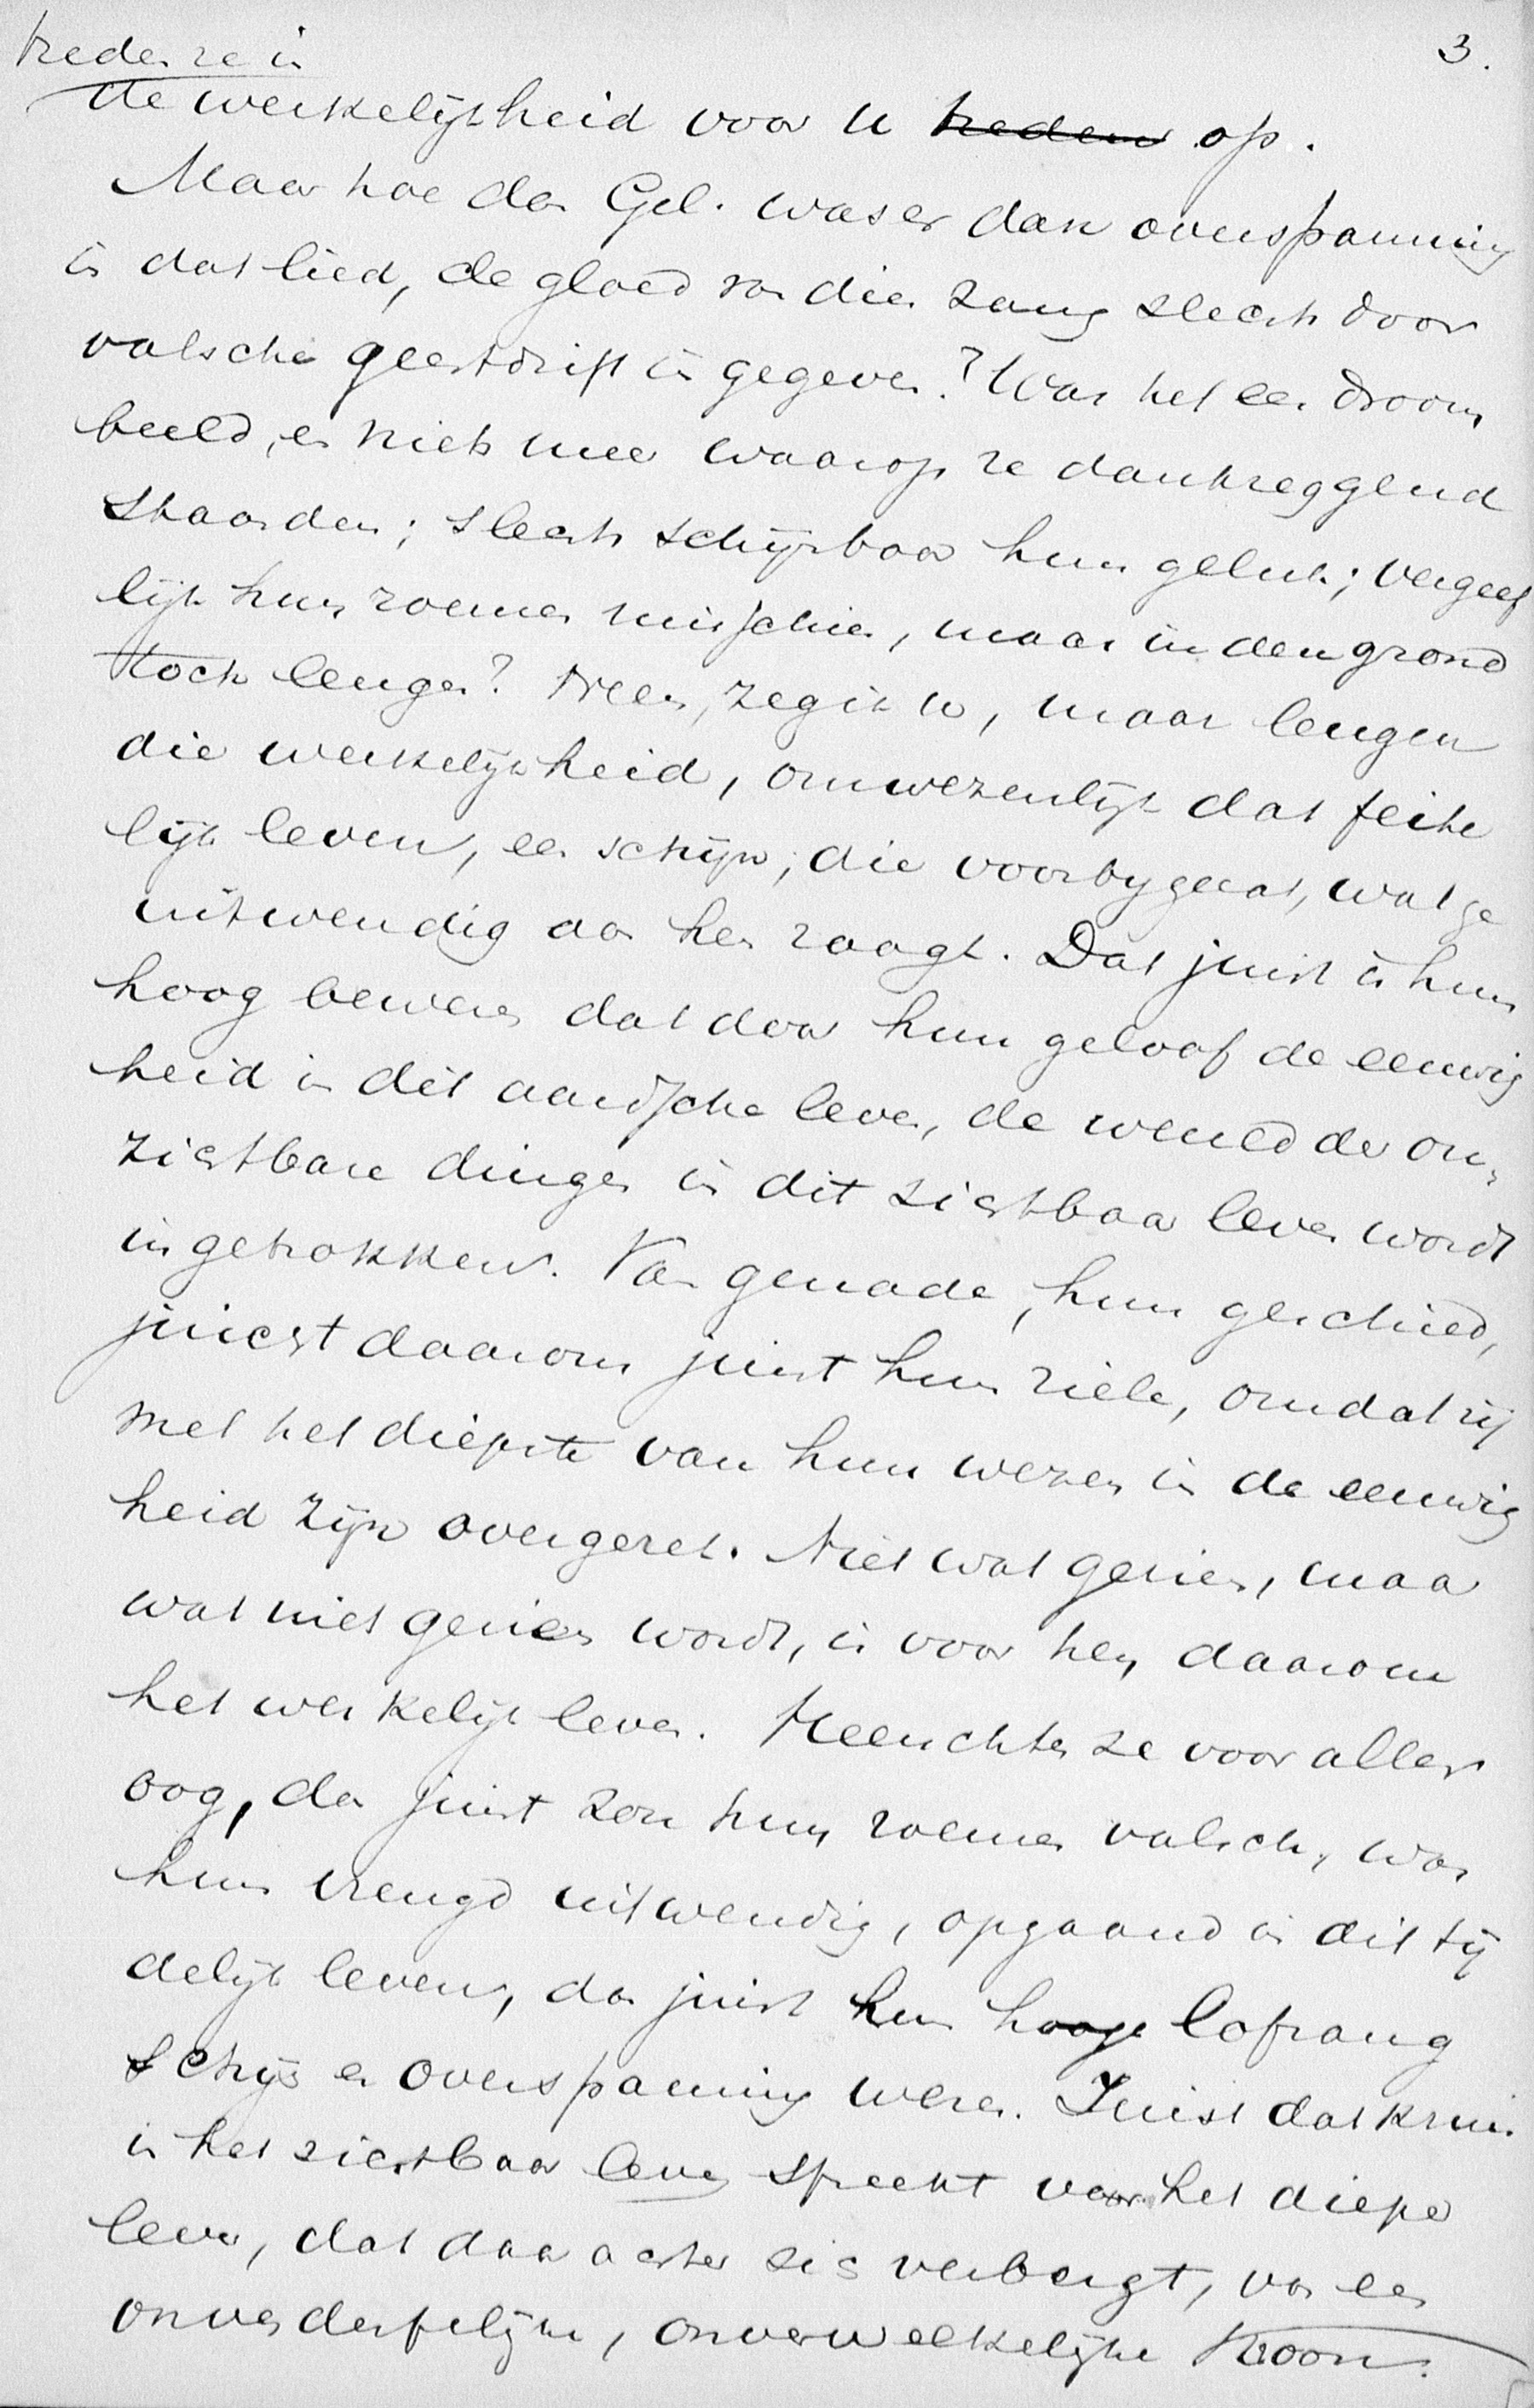 3.
treden ze in
de werkelijkheid voor u treden op.
Maar hoe dan Gel. was er dan overspanning
in dat lied, de gloed van dien zang slechts door
valsche geestdrift in gegeven? Was het een droom
beeld, en niets meer waarop ze dankzeggend
staarden; slechts schijnbaar hun geluk; vergeef
lijk hun roemen misschien, maar in den grond
toch leugen? Neen, zeg ik u, maar leugen
die werkelijkheid, onwezenlijk dat feite
lijk leven, een schijn, die voorbygaat, wat ge
uitwendig aan hen zaagt. Dat juist is hun
hoog beweren dat door hun geloof de eeuwig
heid in dit aardsche leven, de wereld der on
zichtbare dingen in dit zichtbaar leven wordt
ingetrokken. Van genade, hun geschied,
juicht daarom juist hun ziele, omdat zij
met het diepste van hun wezen in de eeuwig
heid zijn overgezet. Niet wat gezien, maar
wat niet gezien wordt, is voor hen daarom
het werkelijk leven. Heerschten ze voor aller
oog, dan juist zou hun roemen valsch, was
hun vreugd uitwendig, opgaand in dit tij
delijk leven, dan juist hun hooge lofzang
schijn en overspanning wezen. Juist dat kruis
in het zichtbaar leven spreekt voor het diepe
leven, dat daar achter zich verbergt, van een
onverderfelijke, onverwelkelijke Kroon.